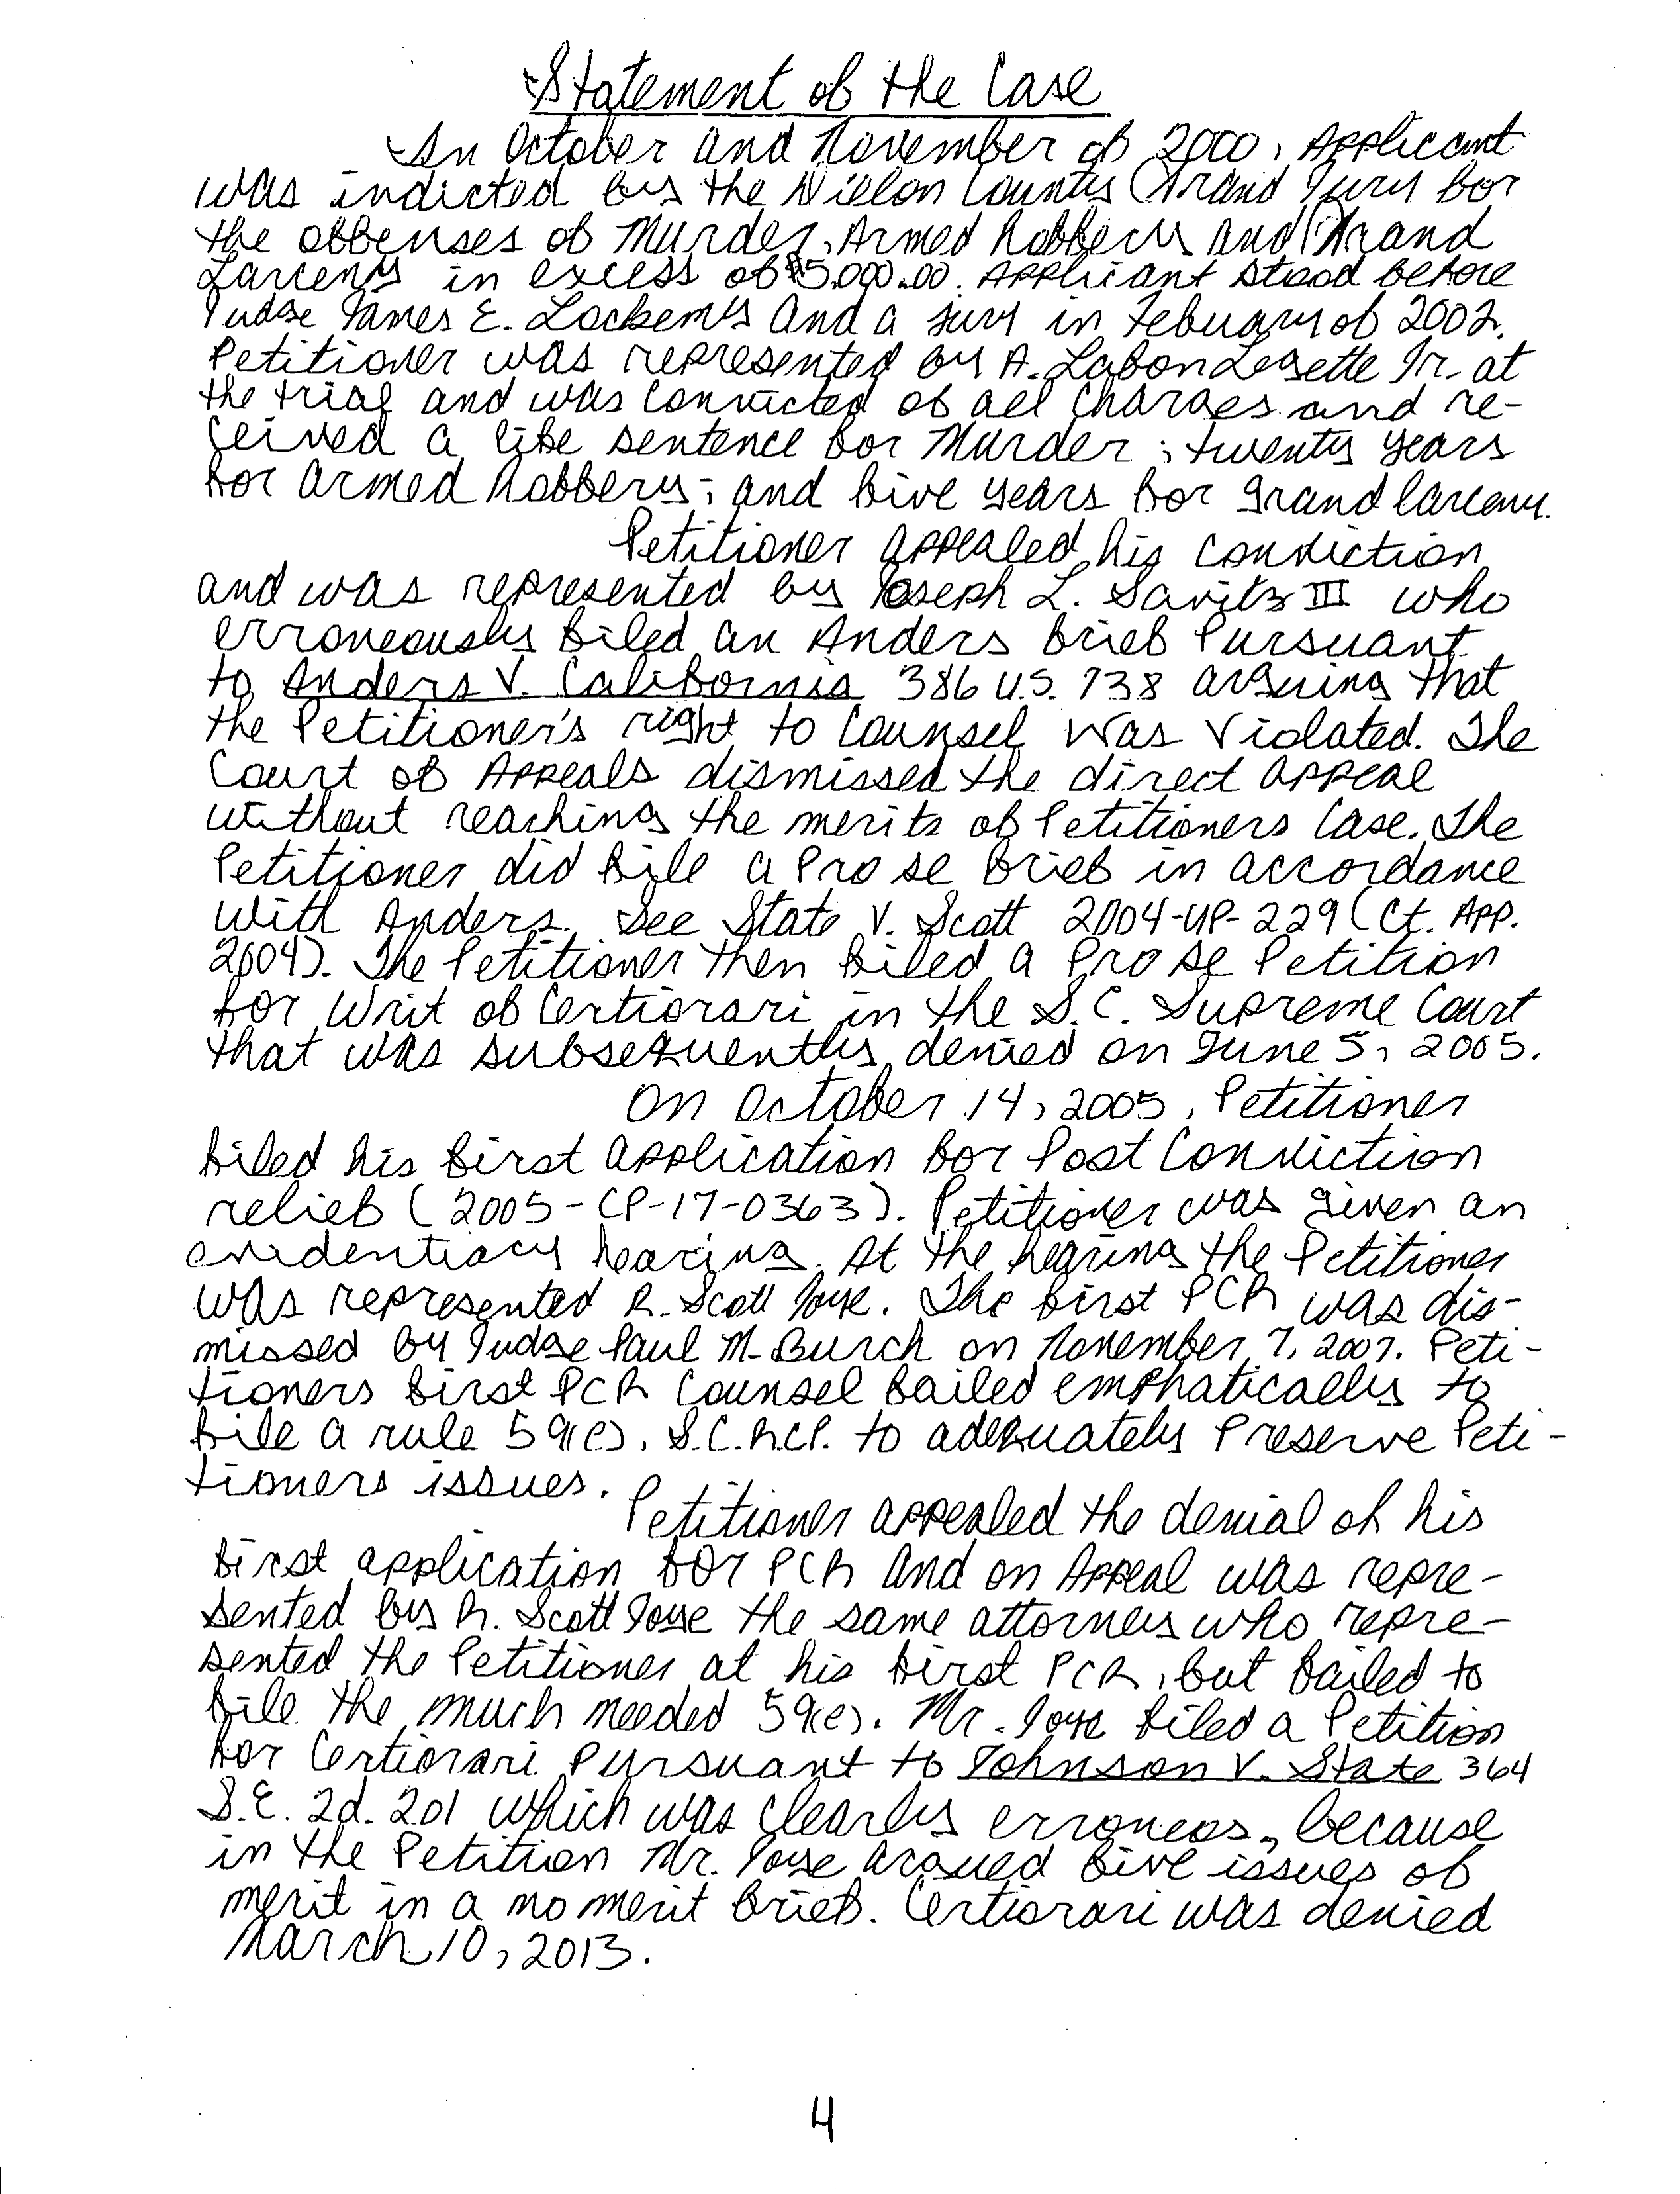 Statement of the Case
In October and November of 2000, Applicant
was indicted by the Dillon County Grand Jury for
the offenses of Murder, Armed Robbery and Grand
Larceny in excess of $5,000.00. Applicant stood before
Judge James E. Lockemy and a jury in Febuary of 2002.
Petitioner was represented by A. LabonLesette Jr. at
the trial and was convicted of all charges and re-
ceived a life sentence for Murder; twenty years
for armed Robbery; and five years for grand larceny.
Petitioner appealed his conviction
and was represented by Joseph L. Savitz III who
erroneously filed an Anders brief Pursuant
to Anders V. California 386 U.S. 738 arguing that
the Petitioner's right to Counsel was violated. The
Court of Appeals dismissed the direct appeal
without reaching the merits of Petitioners Case. The
Petitioner did file a Pro se brief in accordance
with Anders. See State V. Scott 2004-UP-229 (Ct. App.
2004). The Petitioner then filed a Pro se Petition
for Writ of Certiorari in the S.C. Supreme Court
that was subsequently denied on June 5, 2005.
On October 14, 2005, Petitioner
filed his first application for Post Conviction
relief (2005-CP-17-0363). Petitioner was given an
evidentiary hearing. At the hearing the Petitioner
was represented R. Scott Joye. The first PCR was dis-
missed by Judge Paul M. Burch on November 7, 2007. Peti-
tioners first PCR Counsel failed emphatically to
file a rule 59(e), S.C.R.C.P. to adequately Preserve Peti-
tioners issues.
Petitioner appealed the denial of his
first application for PCR and on Appeal was repre-
sented by R. Scott Joye the same attorney who repre-
sented the Petitioner at his first PCR, but failed to
file the much needed 59(e). Mr. Joye filed a Petition
for Certiorari Pursuant to Johnson V. State 364
S.E. 2d. 201 which was clearly erroneos, because
in the Petition Mr. Joye argued five issues of
merit in a no merit brief. Certiorari was denied
March 10, 2013.
4